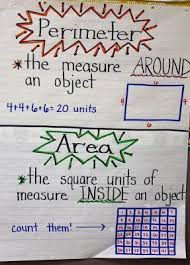 Perimeter
*the measure AROUND
an object
4+4+6+6=20 units
6
4
4
6
Area
*the square units of
measure INSIDE an object
count them! →